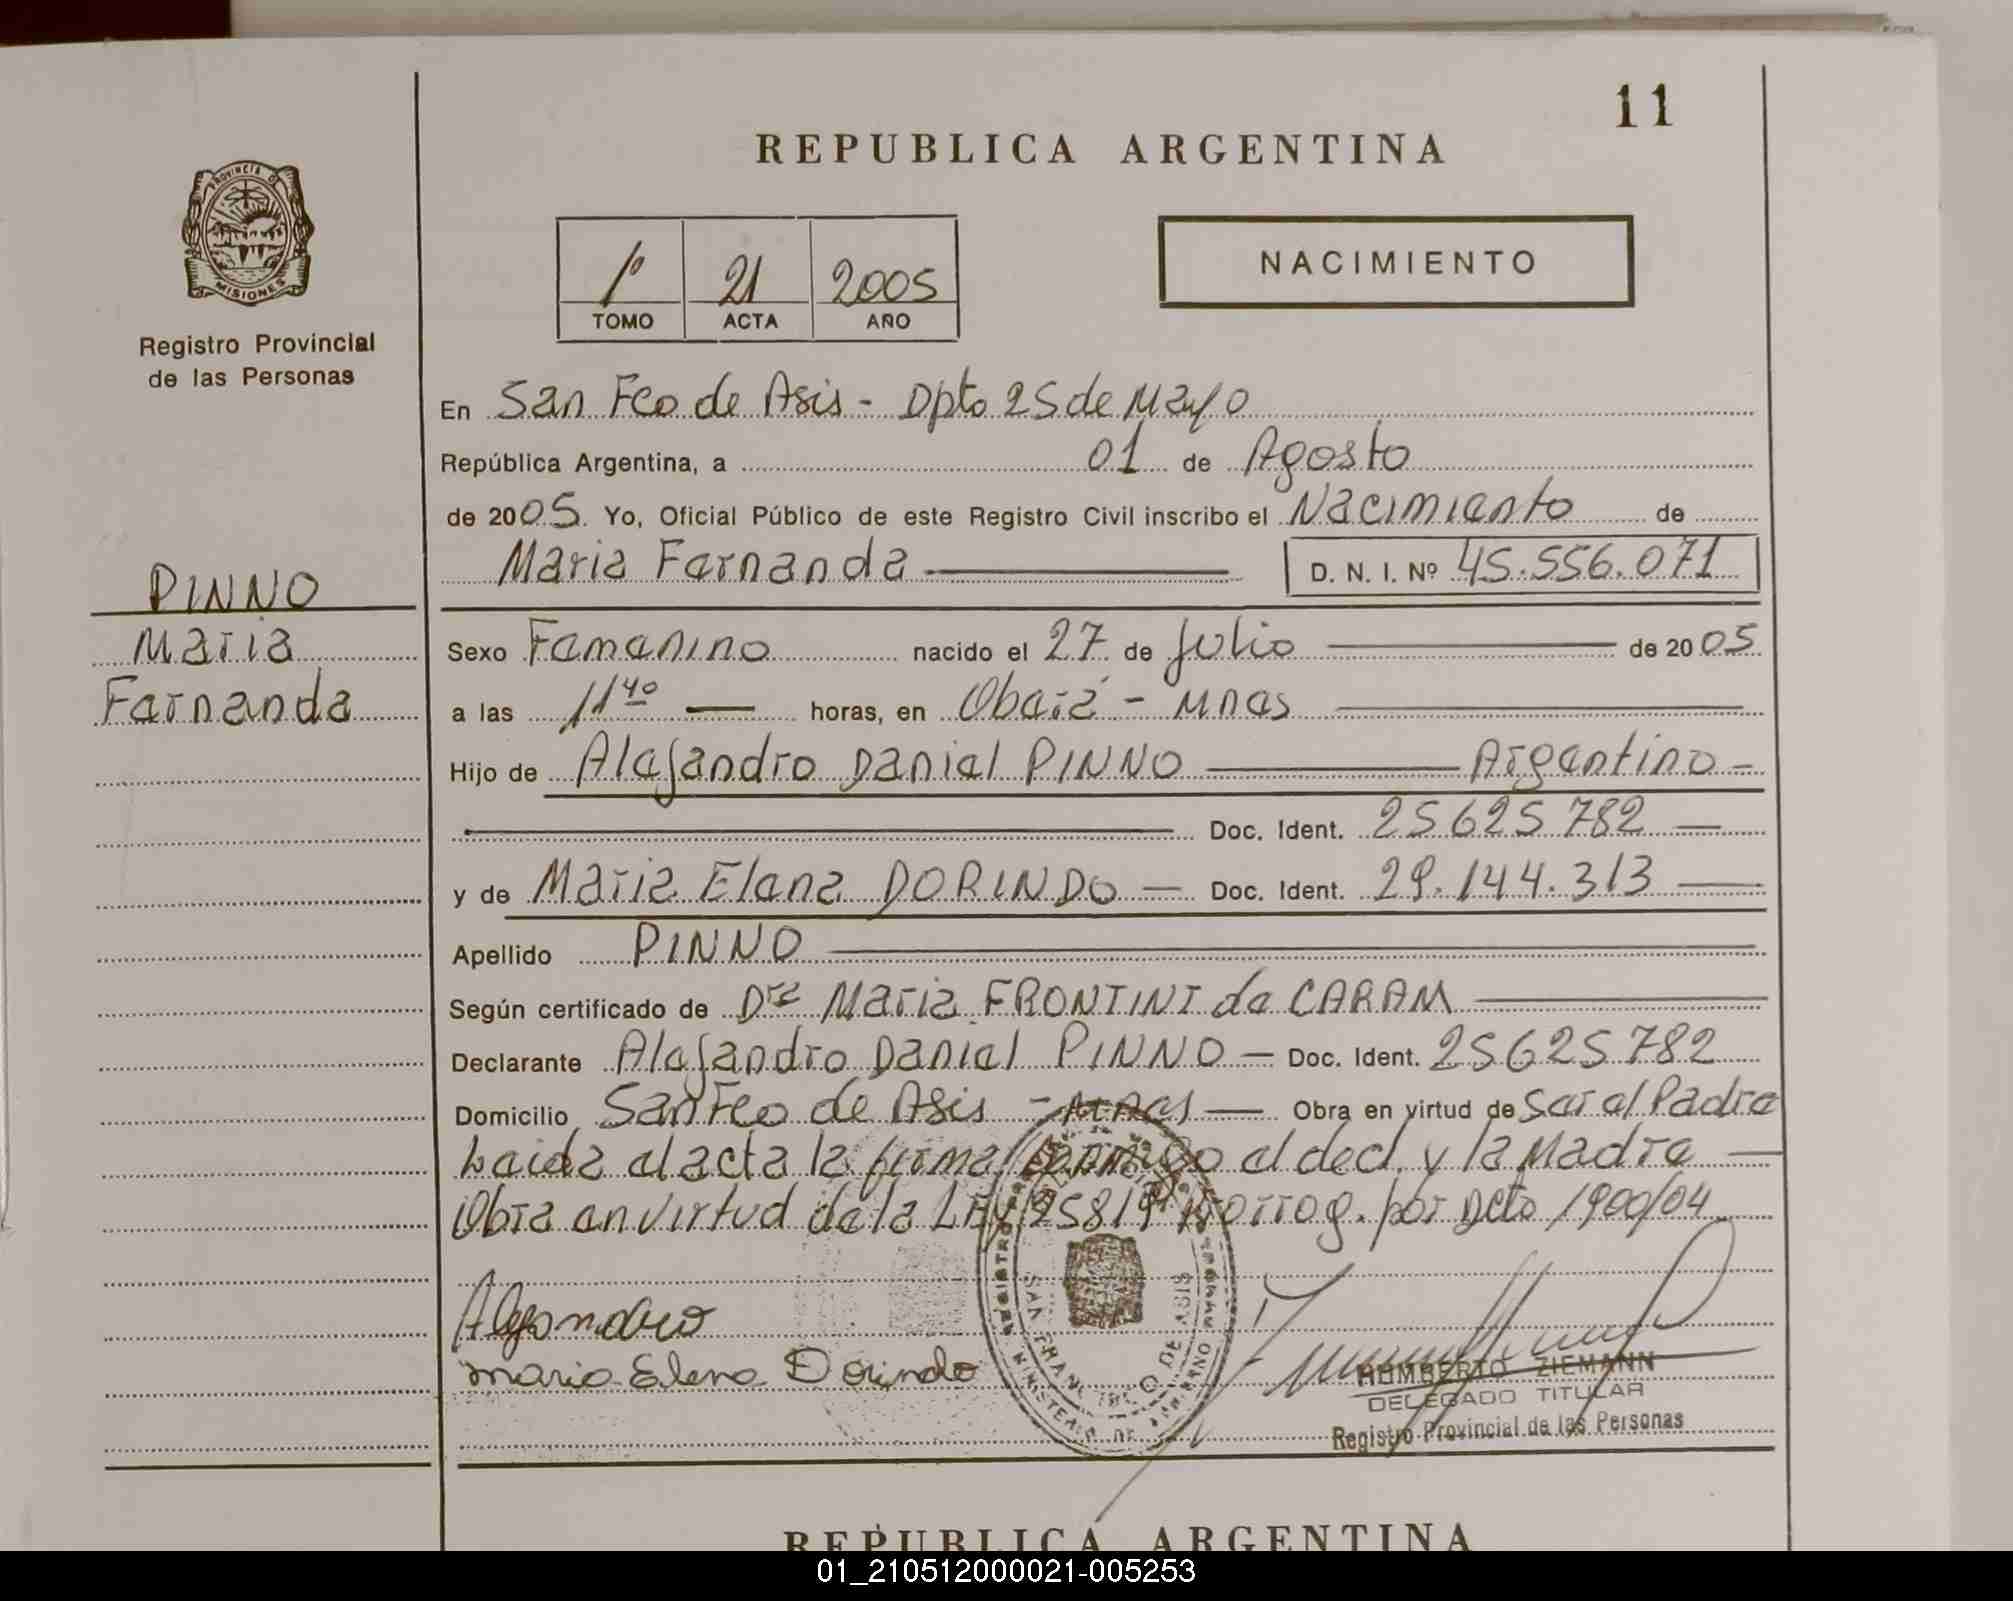 11
REPUBLICA ARGENTINA
PROVINCIA DE
MISIONES
Registro Provincial
de las Personas
1º 21 2005
TOMO ACTA AÑO
NACIMIENTO
En San Fco de Asis - Dpto 25 de Mayo
República Argentina, a 01 de Agosto
de 2005. Yo, Oficial Público de este Registro Civil inscribo el Nacimiento de
Maria Fernanda D. N. I. Nº 45.556.071
PINNO
Maria
Fernanda
Sexo Femenino nacido el 27 de Julio de 2005
a las 11⁴⁰ horas, en Oberá - Mnes
Hijo de Alejandro Daniel PINNO Argentino -
Doc. Ident. 25625782
y de Maria Elena DORINDO - Doc. Ident. 29.144.313
Apellido PINNO
Según certificado de Dra Maria FRONTINI de CARAM
Declarante Alejandro Daniel PINNO - Doc. Ident. 25625782
Domicilio San Fco de Asis - Mnes - Obra en virtud de Ser el Padre
Leida el acta la firma conmigo el decl. y la Madre
Obra en virtud de la Ley 25819 Prorrog. por Dcto 1900/04
Alejandro
Maria Elena Dorindo
SAN FRANCISCO DE ASIS
HUMBERTO ZIEMANN
DELEGADO TITULAR
Registro Provincial de las Personas
REPUBLICA ARGENTINA
01_210512000021-005253